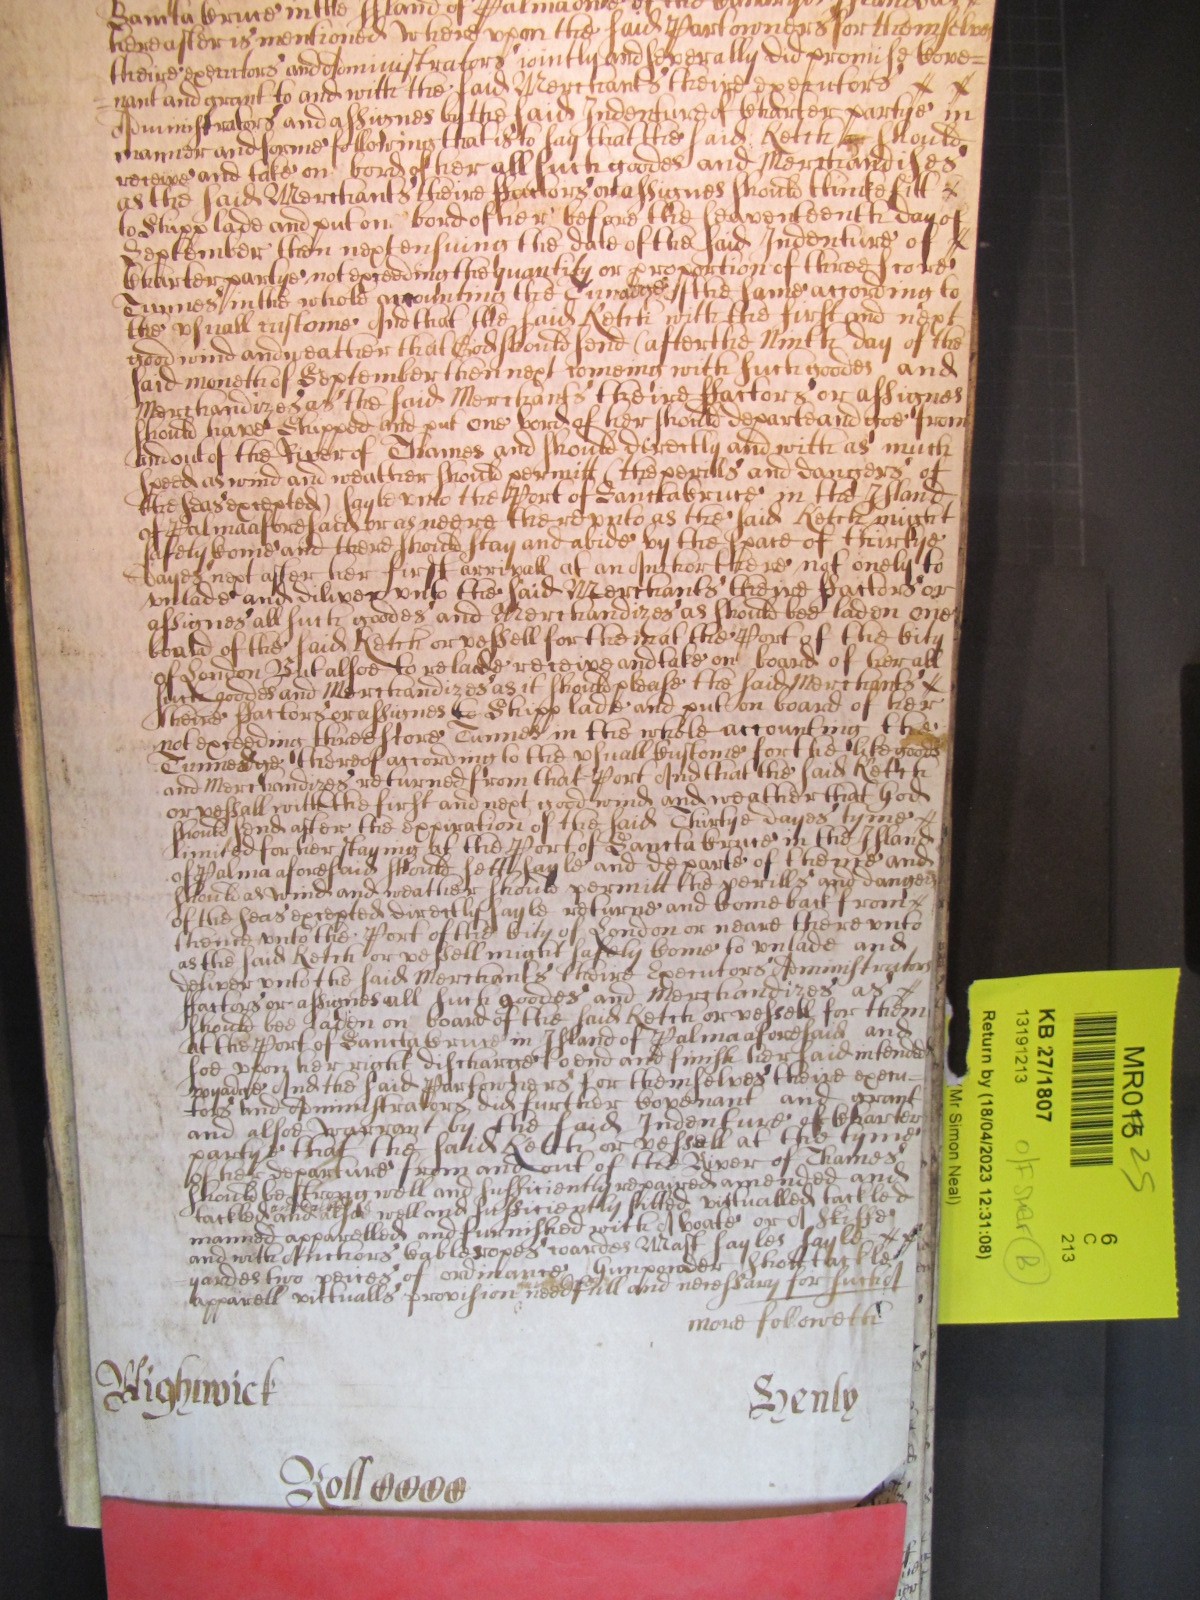 Sancta Cruce in the Island of Palma one of the Canary Islands
hereafter is mentioned Whereupon the said Partowners for themselves
theire executors and administrators joyntly and severally did promise Cove=
=nant and grant to and with the said Merchants theire executors
Administrators and assignes by the said Indenture of Charter partye in
manner and forme following that is to say that the said Ketch should
receive and take on bord of her all such goodes and Merchandises
as the said Merchants theire Factors or assignes should thincke fitt
to Shipp lade and put on bord of her before the seaventeenth day of
September then next ensuing the date of the said Indenture of
Charter partye not exceeding the quantity or proportion of threescore
Tunnes in the whole accounting the Tunnadge of the same according to
the usuall custome And that the said Ketch with the first and next
good wind and weather that God should send (after the Ninth day of the
said moneth of September then next comeing with such goodes and
Merchandizes as the said Merchants theire Factors or assignes
should have Shipped and put one bord of her should departe and goe from
and out of the River of Thames and should directly and with as much
speed as wind and weather should permitt (the perills and dangers of
the seas excepted) sayle unto the Port of Sancta Cruce in the Island
of Palma aforesaid or as neere thereunto as the said Ketch might
safely Come and there should stay and abide by the space of thirtye
Dayes next after her first arrivall at an Anchor there not onely to
unlade and diliver unto the said Merchants theire Factors or
assignes all such goodes and Merchandizes as should bee laden one
board of the said Ketch or vessell for them at the Port of the City
of London But alsoe to relade receive and take on board of her all
such goodes and Merchandizes as it should please the said Merchants
theire Factors or assignes to Shipp lade and put on board of her
not exceeding threescore Tunnes in the whole accounting the
Tunnedge thereof according to the usuall Custome for the like goods
and Merchandizes returned from that Port And that the said Ketch
or vessall with the first and next good wind and weather that God
should send after the expiration of the said Thirtye dayes tyme
limitted for her staying at the Port of Sancta Cruce in the Island
of Palma aforesaid should sett sayle and departe of thence and
should as wind and weather should permitt the perills and dangers
of the seas excepted directly sayle returne and Come back from
thence unto the Port of the City of London or neare there unto
as the said Ketch or vessell might safely Come to unlade and
deliver unto the said Merchants theire Executors Administrators
Factors or assignes all such goodes and Merchandizes as
should bee laden on board of the said Ketch or vessell for them
at the Port of Sancta Cruce in Island of Palma aforesaid and
soe upon her right discharge to end and finish her said intended
voyadge And the said Partowners for themselves theire execu=
tors and Administrators did further Covenant and grant
and alsoe warrant by the said Indenture of Charter
partye that the said Ketch or vessell at the tyme
of her departure from and out of the River of Thames
should be strong well and sufficiently repaired amended and
tackled and alsoe well and sufficiently fitted victualled tackled
manned apparelled and furnished with A boate or A Skiffe
and with Anchors Cables ropes Mast sayles sayle
yardes two peices of ordinance Gunpowder Shott tackle
apparell victualls provision needfull and necessary for such A
more followeth
Wightwick
Henly
Roll
MR018 25
6
C
213
KB 27/1807
13191213
Return by (18/04/2023 12:31:08)
(Mr Simon Neal)